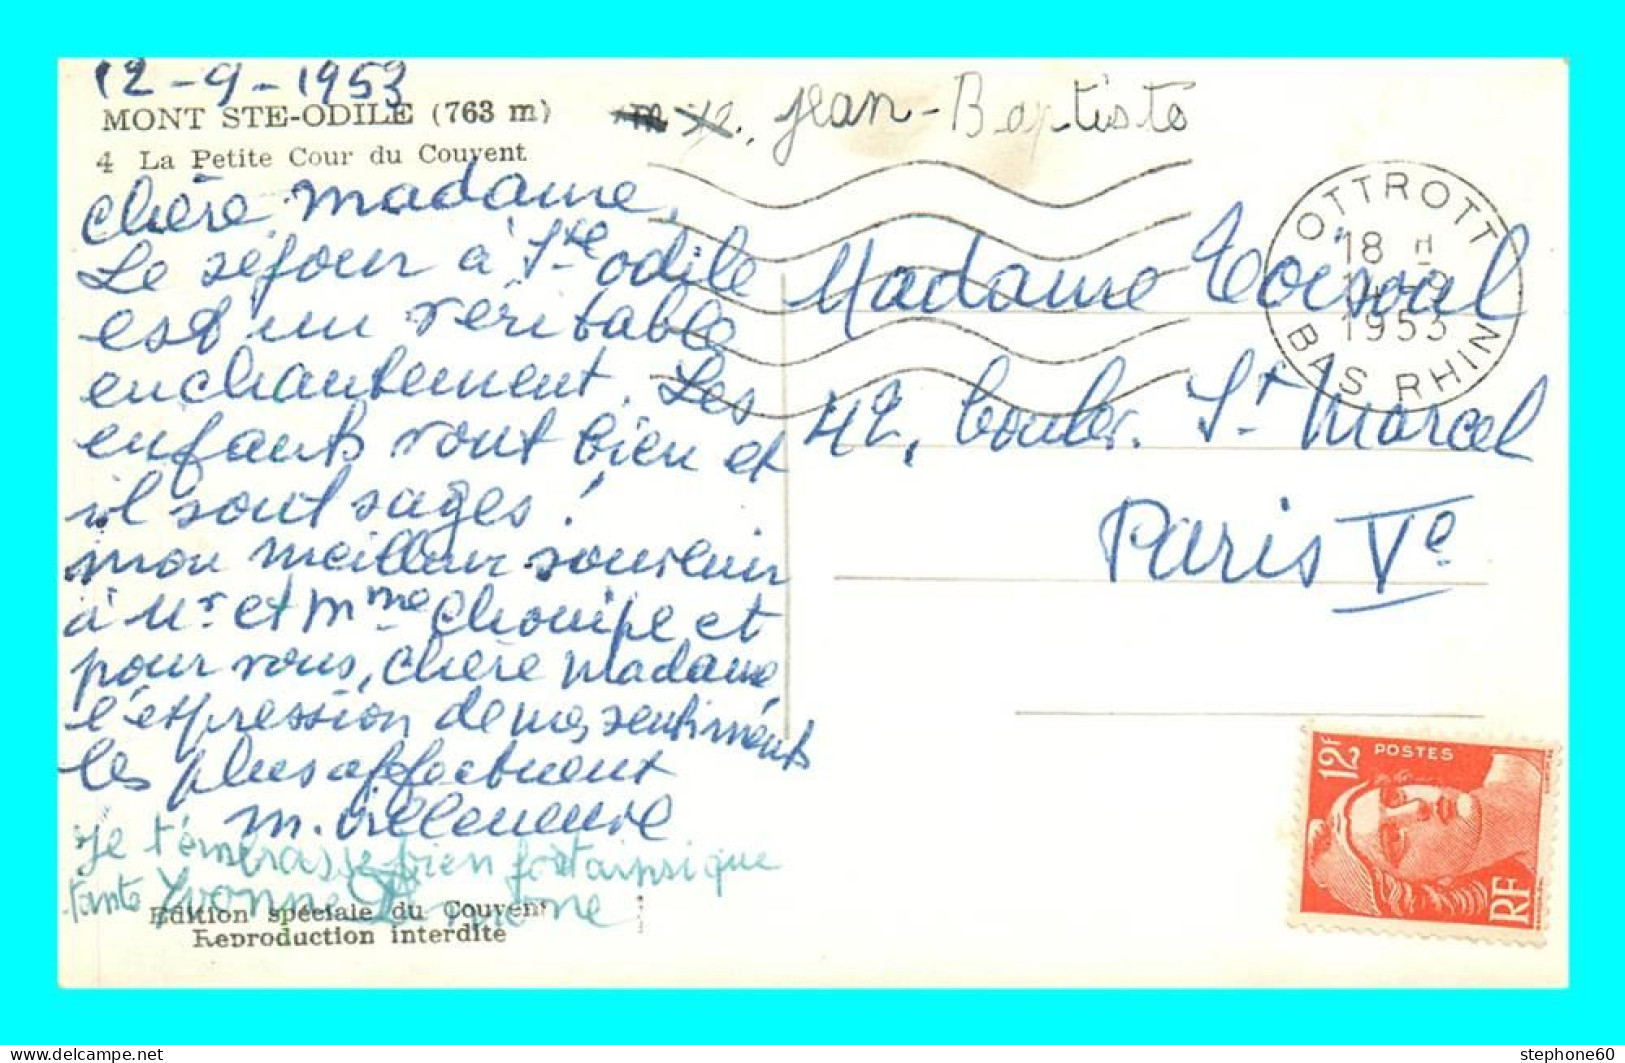 12-9-1953
MONT STE-ODILE (763 m)
4 La Petite Cour du Couvent
Jean-Baptiste
chère madame,
Le séjour à Ste odile
est un véritable
enchantement. Les
enfants vont bien et
il sont sages !
mon meilleur souvenir
à Mr. et Mme Chouipe et
pour vous, chère madame
l'expression de mes sentiments
les plus affectueux
m. Villeneuve
Je t'embrasse bien fort ainsi que
tante Yvonne
Simone
Edition spéciale du Couvent
Reproduction interdite
OTTROTT
18 H
1953
BAS RHIN
Madame
42, boulev. St Marcel
Paris Ve
12F
POSTES
RF
delcampe.net
stephone60